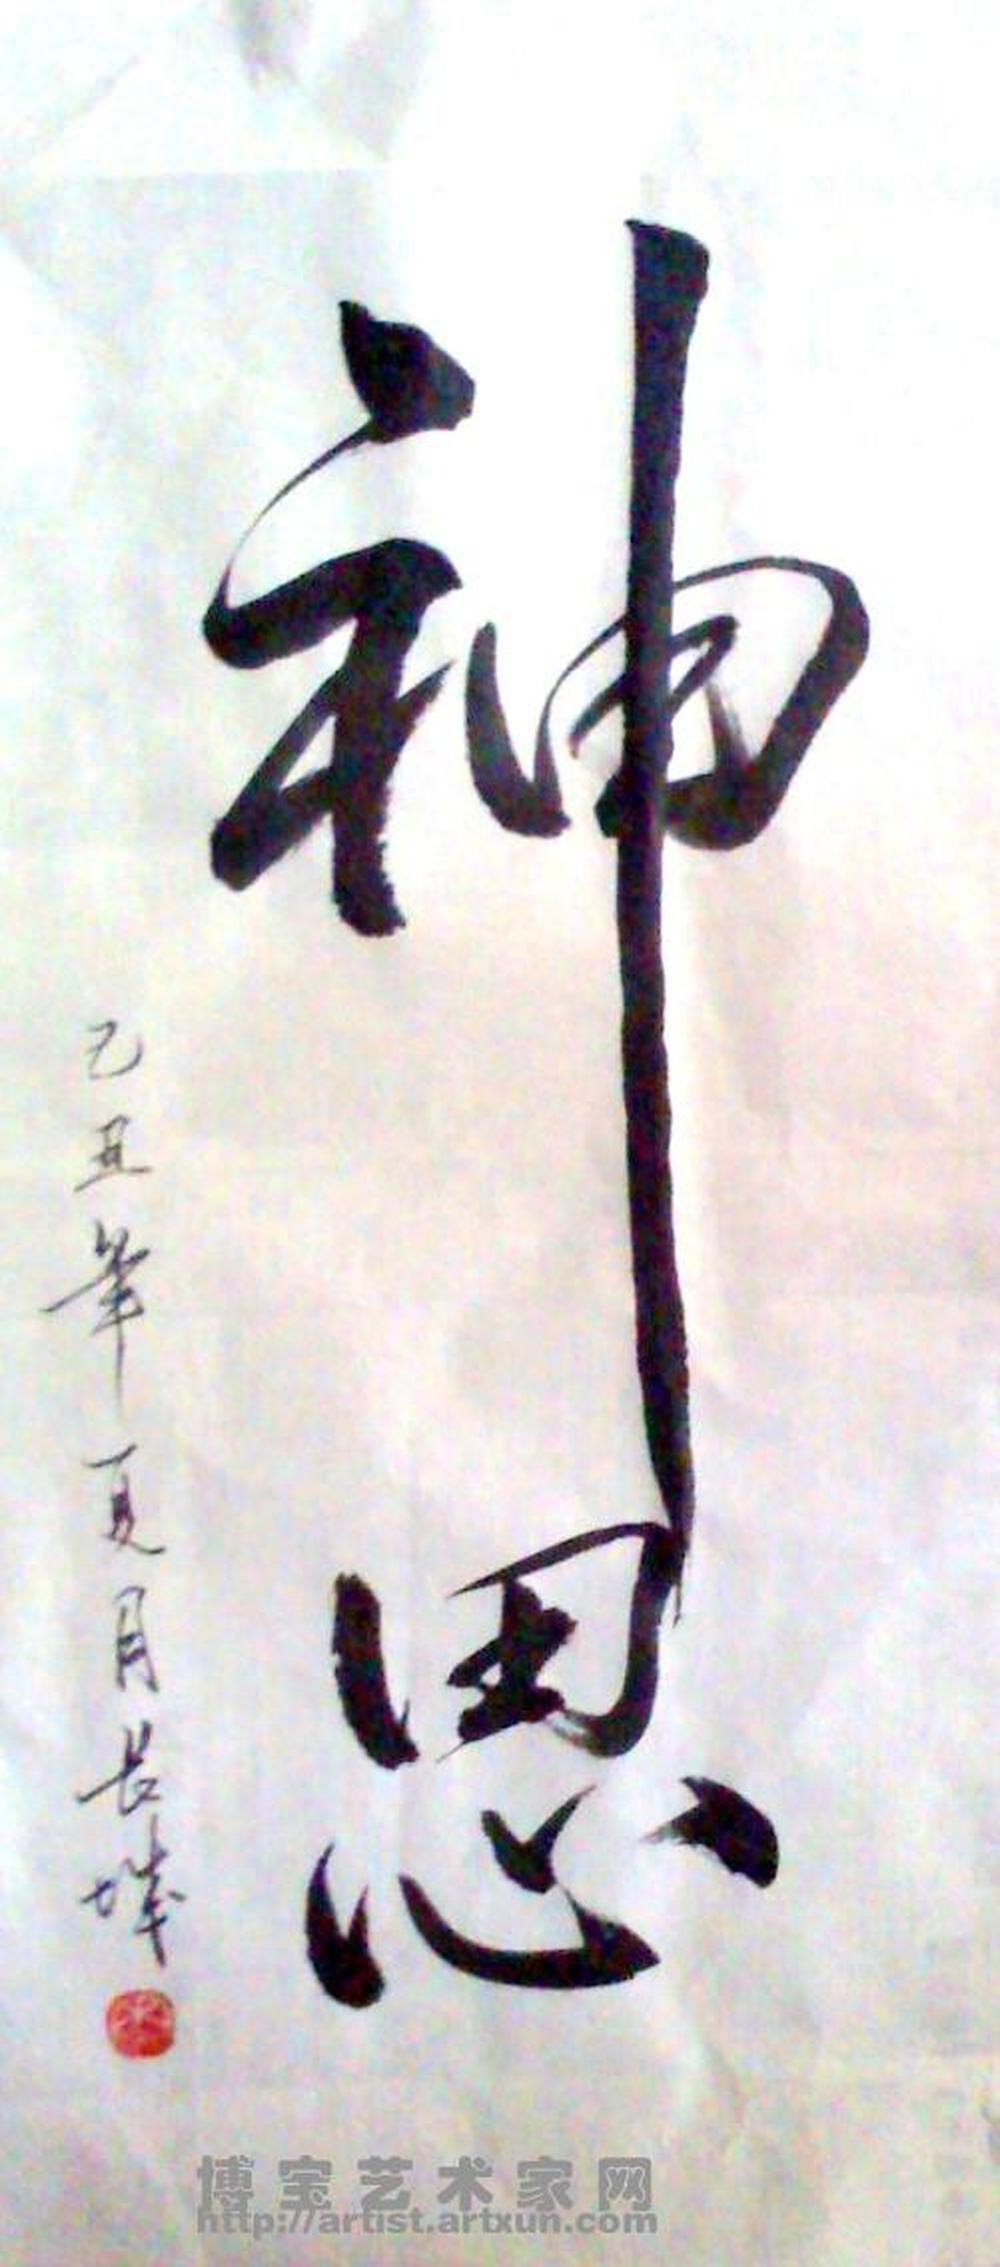 神思
己丑年夏月长城
博宝艺术家网
http://artist.artxun.com